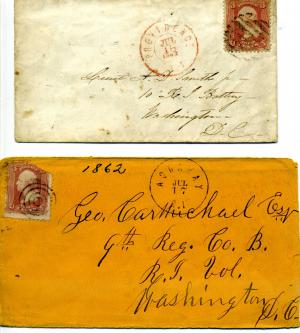 PROVIDENCE
JUL
17
Lieut A. P. Smith Jr
10 R. I. Battery
Washington
D. C.
1862
JUL
17
R.I.
Geo. Carmichael Esq
9th Reg. Co. B.
R. I. Vol.
Washington
D. C.